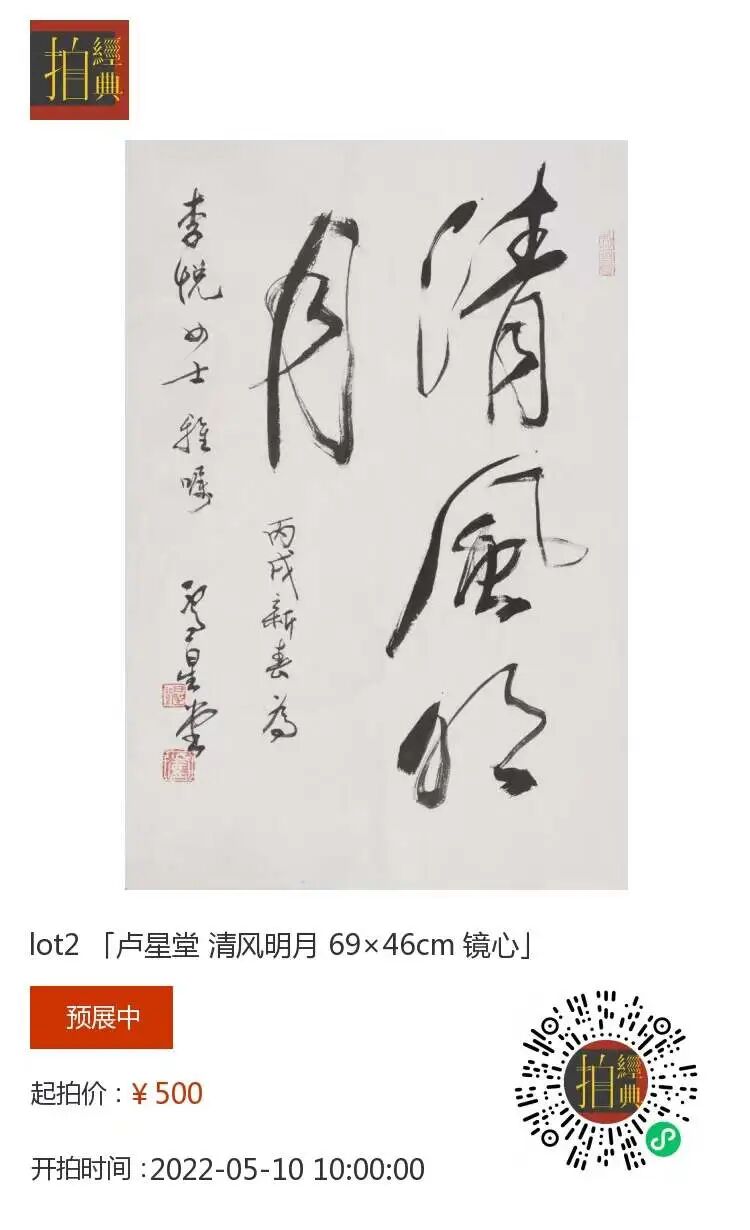 拍經典
清風明
月
丙戌新春為
李悦女士雅嘱
卢星堂
lot2 「卢星堂 清风明月 69×46cm 镜心」
预展中
起拍价：¥ 500
开拍时间：2022-05-10 10:00:00
拍經典